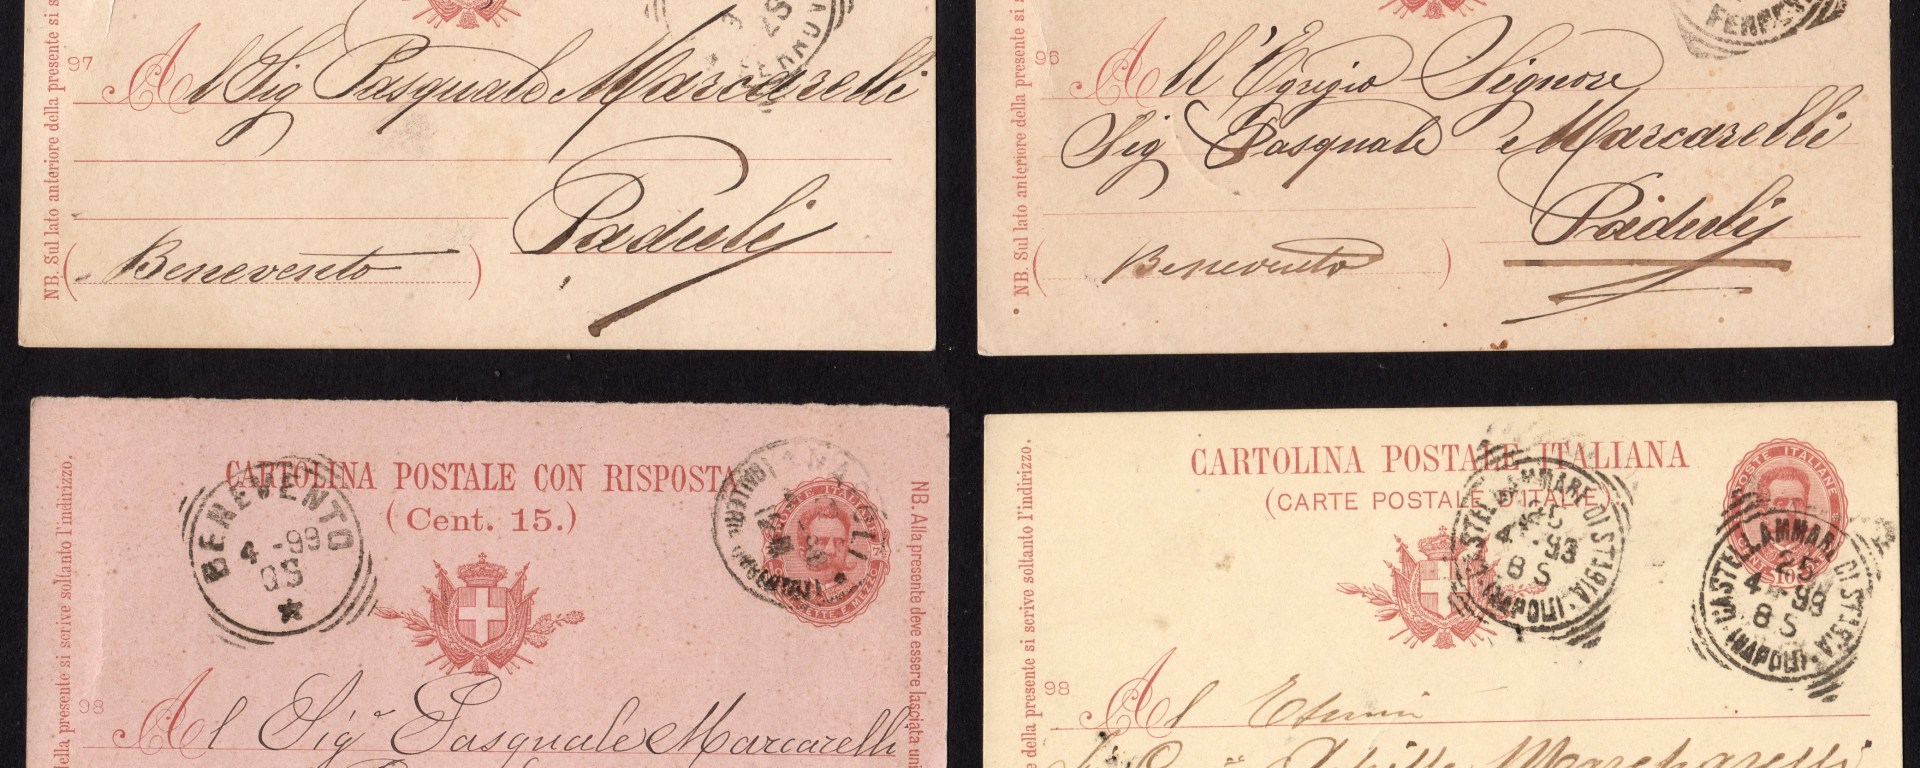 97
Al Sig Pasquale Marcarelli
Paduli
(Benevento)
NB. Sul lato anteriore della presente si s
FERR
96
All'Egregio Signore
Sig Pasquale Marcarelli
Paduli
(Benevento)
NB. Sul lato anteriore della presente si
CARTOLINA POSTALE CON RISPOSTA
(Cent. 15.)
BENEVENTO
4 -99
9S
POSTE ITALIANE
SETTE E MEZZO
98
Al Sigr Pasquale Marcarelli
della presente si scrive soltanto l'indirizzo.
NB. Alla presente deve essere lasciata uni
CARTOLINA POSTALE ITALIANA
(CARTE POSTALE D'ITALIE)
POSTE ITALIANE
CASTELLAMMARE DI STABIA (NAPOLI)
25
4 - 99
8 S
CASTELLAMMARE DI STABIA (NAPOLI)
25
4 - 99
8 S
98
Al
Achille
e della presente si scrive soltanto l'indirizzo.